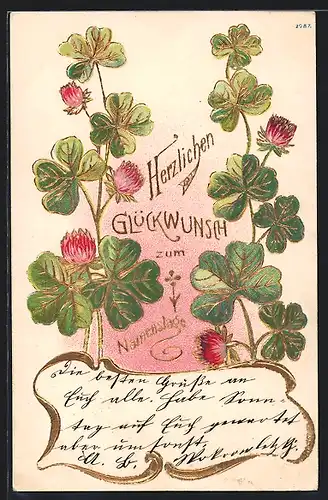 1987.
Herzlichen
GLÜCKWUNSCH
zum
Namenstage
Die besten Grüße an
Euch alle. Habe Sonn-
tag auf Euch gewartet
aber umsonst.
A. B.